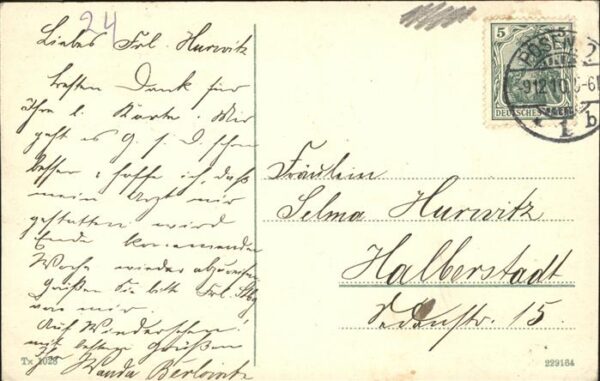 24
Liebes Frl. Hurwitz
besten Dank für
Ihre l. Karte. Mir
geht es G. s. D. schon
besser u. hoffe ich, daß
mein Arzt mir
gestatten wird
Ende kommender
Woche wieder
Grüßen Sie bitte Frl.
von mir.
Auf Wiedersehen!
mit besten Grüßen
Ihre Wanda Berlowitz
Tx 1028
5
DEUTSCHES
POSEN
-912 10 5-6
1 b
Fräulein
Selma Hurwitz
Halberstadt
Sedanstr. 15.
229164